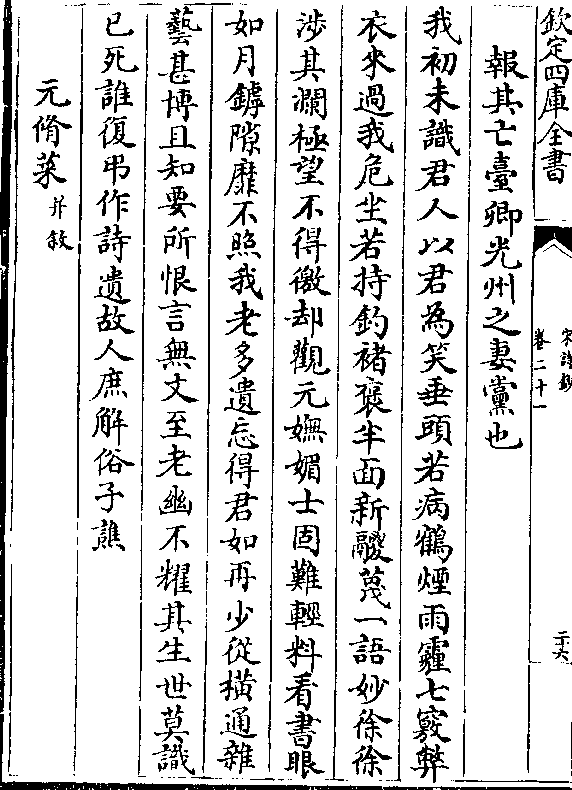 欽定四庫全書
宋詩鈔
卷二十一
二十六
報其亡臺卿光州之妻黨也
我初未識君人以君為笑垂頭若病鶴煙雨霾七竅弊
衣來過我危坐若持釣褚裒半面新鬷蔑一語妙徐徐
涉其瀾極望不得徼却觀元嫵媚士固難輕料看書眼
如月罅隙靡不照我老多遺忘得君如再少從橫通雜
藝甚博且知要所恨言無文至老幽不耀其生世莫識
已死誰復弔作詩遺故人庶解俗子譙
元脩菜并敘